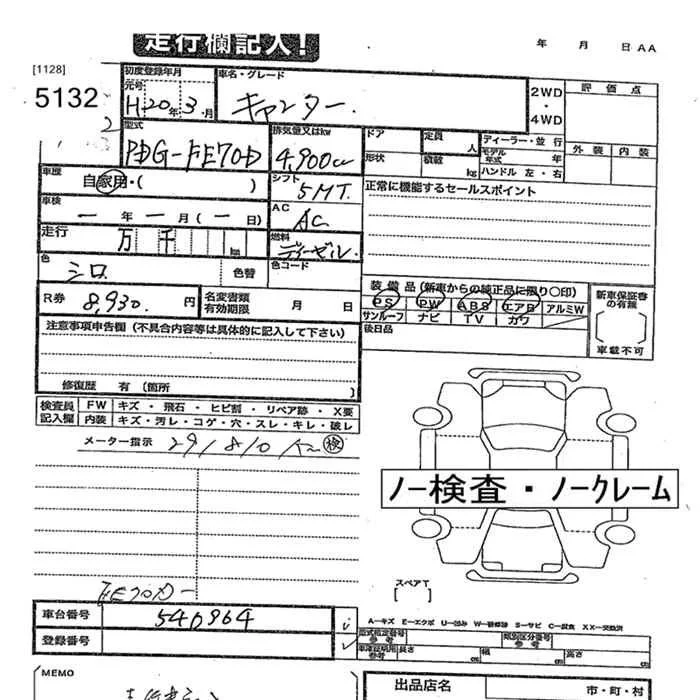 走行欄記入！
年 月 日 AA
[1128]
5132
2
初度登録年月
元号
H20年3.月
車名・グレード
キャンター
2WD
・
4WD
評価点
外装 内装
型式
PDG-FE70D
排気量又はkw
4,900cc
ドア
形状
定員
人
積載
kg
ディーラー・並行
モデル年式 年
ハンドル 左・右
車歴
自家用・( )
シフト
5MT.
正常に機能するセールスポイント
車検
一年一月(一日)
AC
AC
走行
万 千 km
燃料
ディーゼル
色
シロ
色替
色コード
R券
8,930.円
名変書類
有効期限
月 日
装備品(新車からの純正品に限り〇印)
PS PW ABS エアB アルミW
サンルーフ ナビ TV カワ
後日品
新車保証書
の有無
車載不可
注意事項申告欄(不具合内容等は具体的に記入して下さい)
修復歴 有 (箇所 )
検査員
記入欄
FW キズ ・ 飛石 ・ ヒビ割 ・ リペア跡 ・ X要
内装 キズ・汚レ・コゲ・穴・スレ・キレ・破レ
メーター指示 291810 km 検
ノー検査・ノークレーム
スペアT
[ ]
FE70D-
車台番号 540964
登録番号
A－キズ E－エクボ U－凹み W－補修跡 S－サビ C－腐食 XX－交換済
型式指定番号
参考
類別区分番号
参考
車庫証明用
参考
長さ cm 幅 cm 高さ cm
MEMO
出品店名
市・町・村